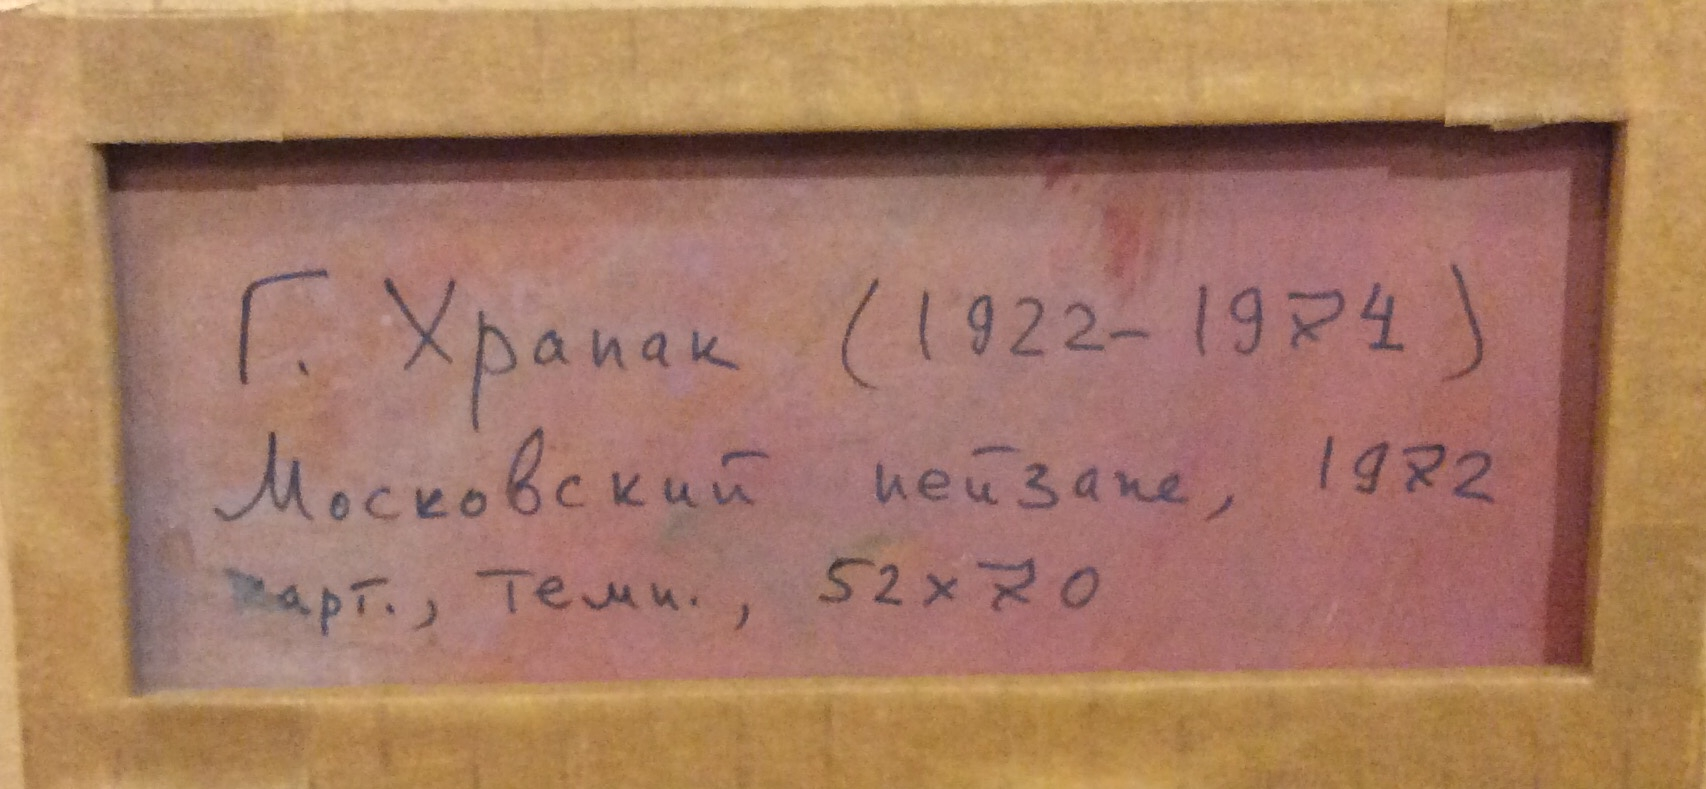 Г. Храпак (1922-1974)
Московский пейзаж, 1972
карт., темп., 52x70